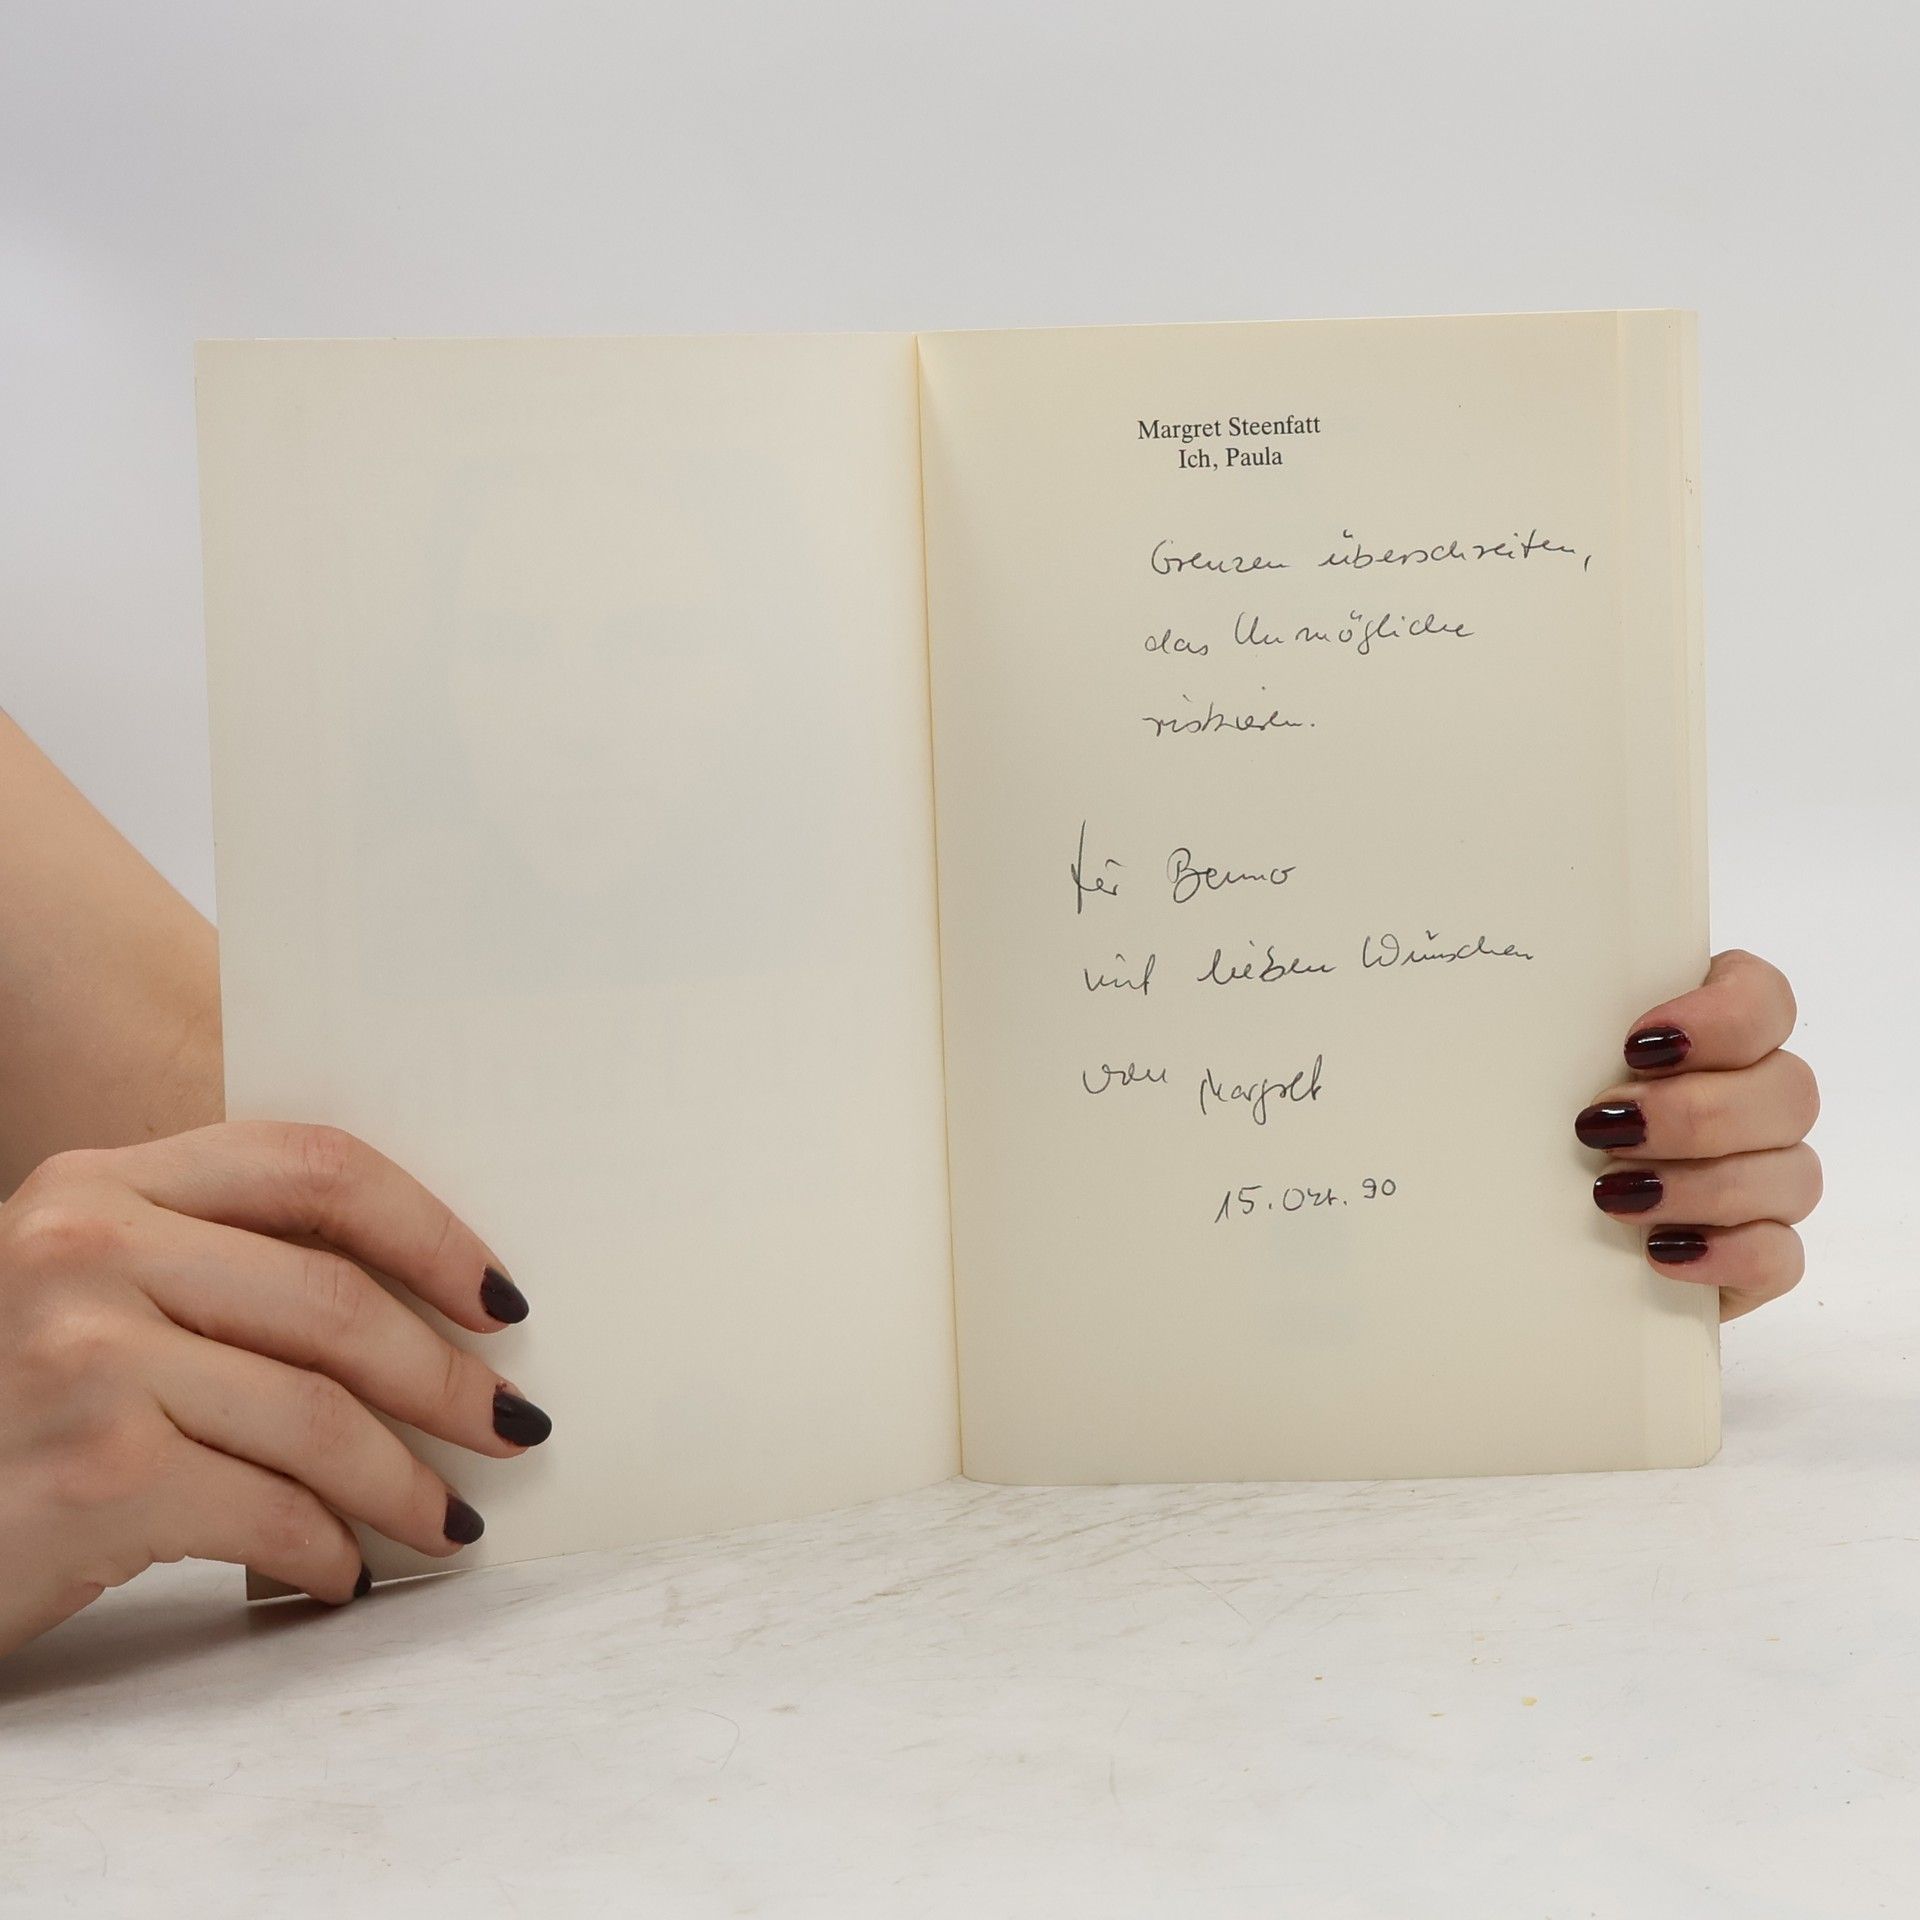 Margret Steenfatt
Ich, Paula
Grenzen überschreiten,
das Unmögliche
riskieren.
für Benno
mit lieben Wünschen
von Margret
15. Okt. 90